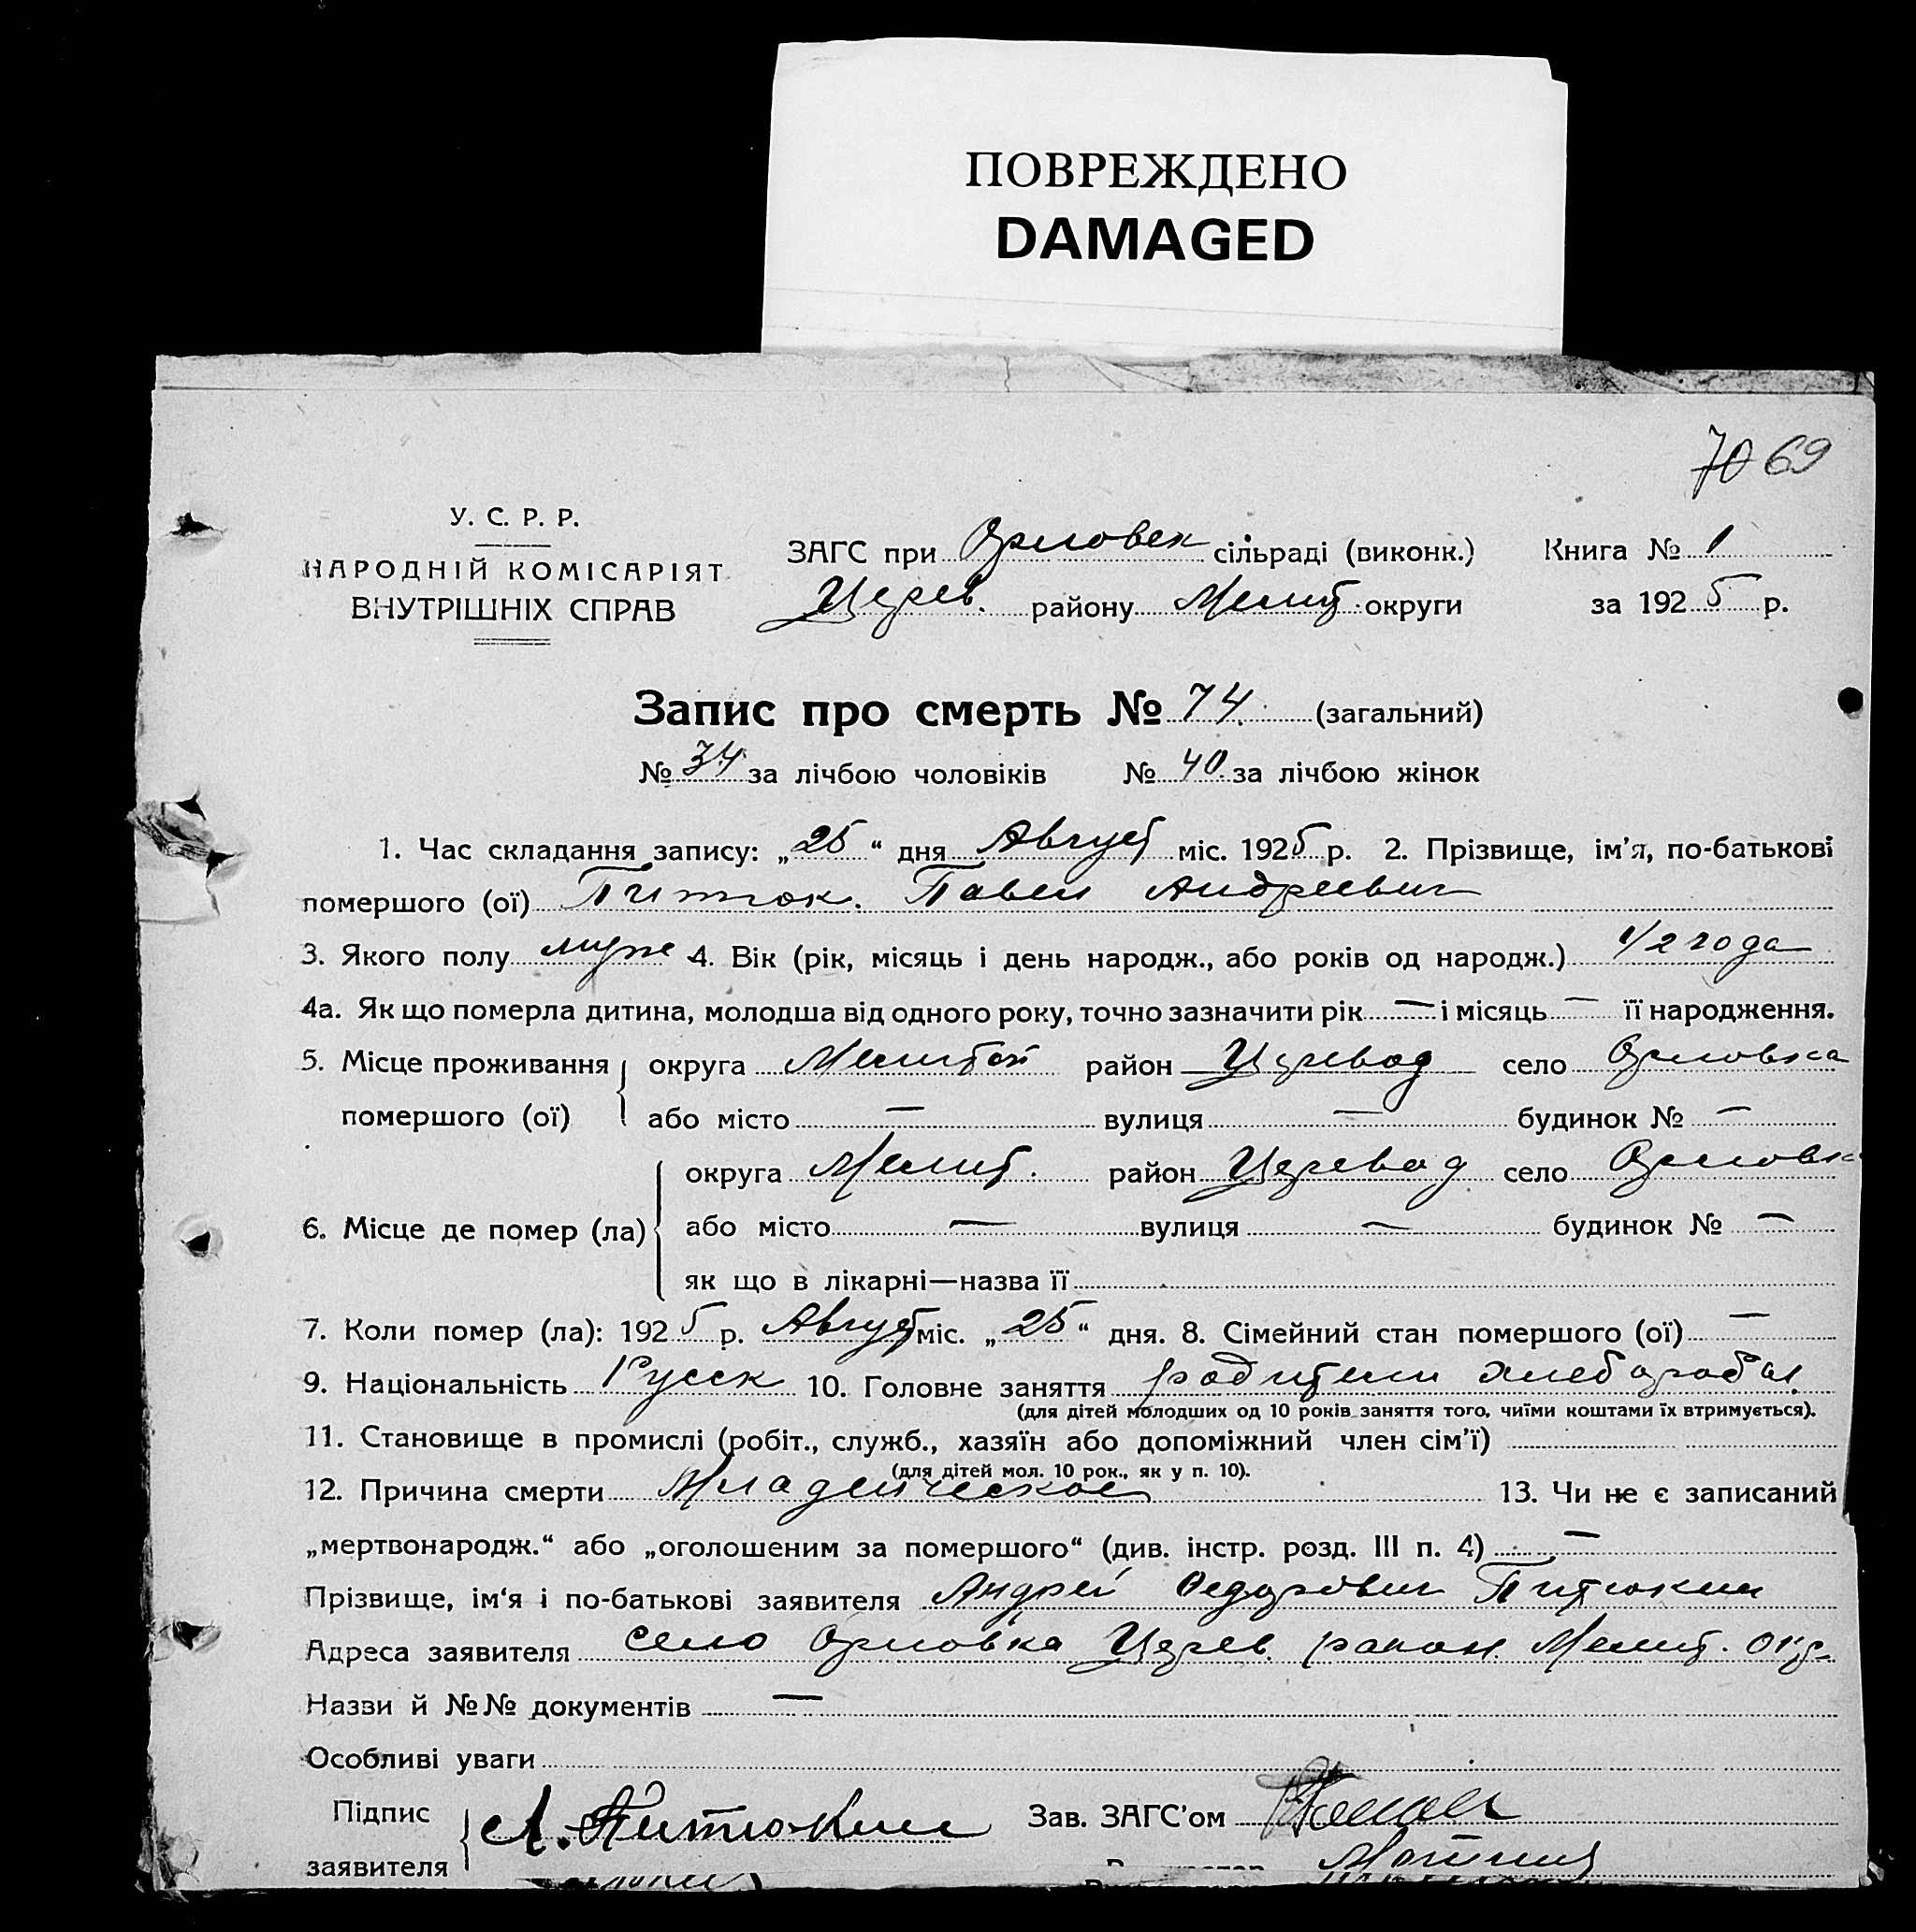 ПОВРЕЖДЕНО
DAMAGED
70 69
У. С. Р. Р.
НАРОДНІЙ КОМІСАРІЯТ
ВНУТРІШНІХ СПРАВ
ЗАГС при Орловск сільраді (виконк.) Книга № 1
Церев. району Мелит. округи за 1925 р.
Запис про смерть № 74. (загальний)
№ 34 за лічбою чоловіків № 40. за лічбою жінок
1. Час складання запису: „25“ дня Август міс. 1925 р. 2. Прізвище, ім'я, по-батькові
помершого (ої) Питюк. Павел Андреевич
3. Якого полу муж 4. Вік (рік, місяць і день народж., або років од народж.) 1/2 года
4а. Як що померла дитина, молодша від одного року, точно зазначити рік — і місяць — її народження.
5. Місце проживання округа Мелитоп район Церевод село Орловка
помершого (ої) або місто — вулиця — будинок № —
округа Мелит. район Церевод село Орловк
6. Місце де помер (ла) або місто — вулиця — будинок № —
як що в лікарні—назва її
7. Коли помер (ла): 1925 р. Август міс. „25“ дня. 8. Сімейний стан помершого (ої) —
9. Національність Русск 10. Головне заняття родители хлеборобы
(для дітей молодших од 10 років заняття того, чиїми коштами їх втримується).
11. Становище в промислі (робіт., служб., хазяїн або допоміжний член сім'ї)
(для дітей мол. 10 рок., як у п. 10).
12. Причина смерти Младенческое 13. Чи не є записаний
„мертвонародж.“ або „оголошеним за помершого“ (див. інстр. розд. III п. 4) —
Прізвище, ім'я і по-батькові заявителя Андрей Федорович Питюкин
Адреса заявителя село Орловка Церев. район. Мелит. окр.
Назви й №№ документів —
Особливі уваги
Підпис А. Питюкин Зав. ЗАГС'ом
заявителя